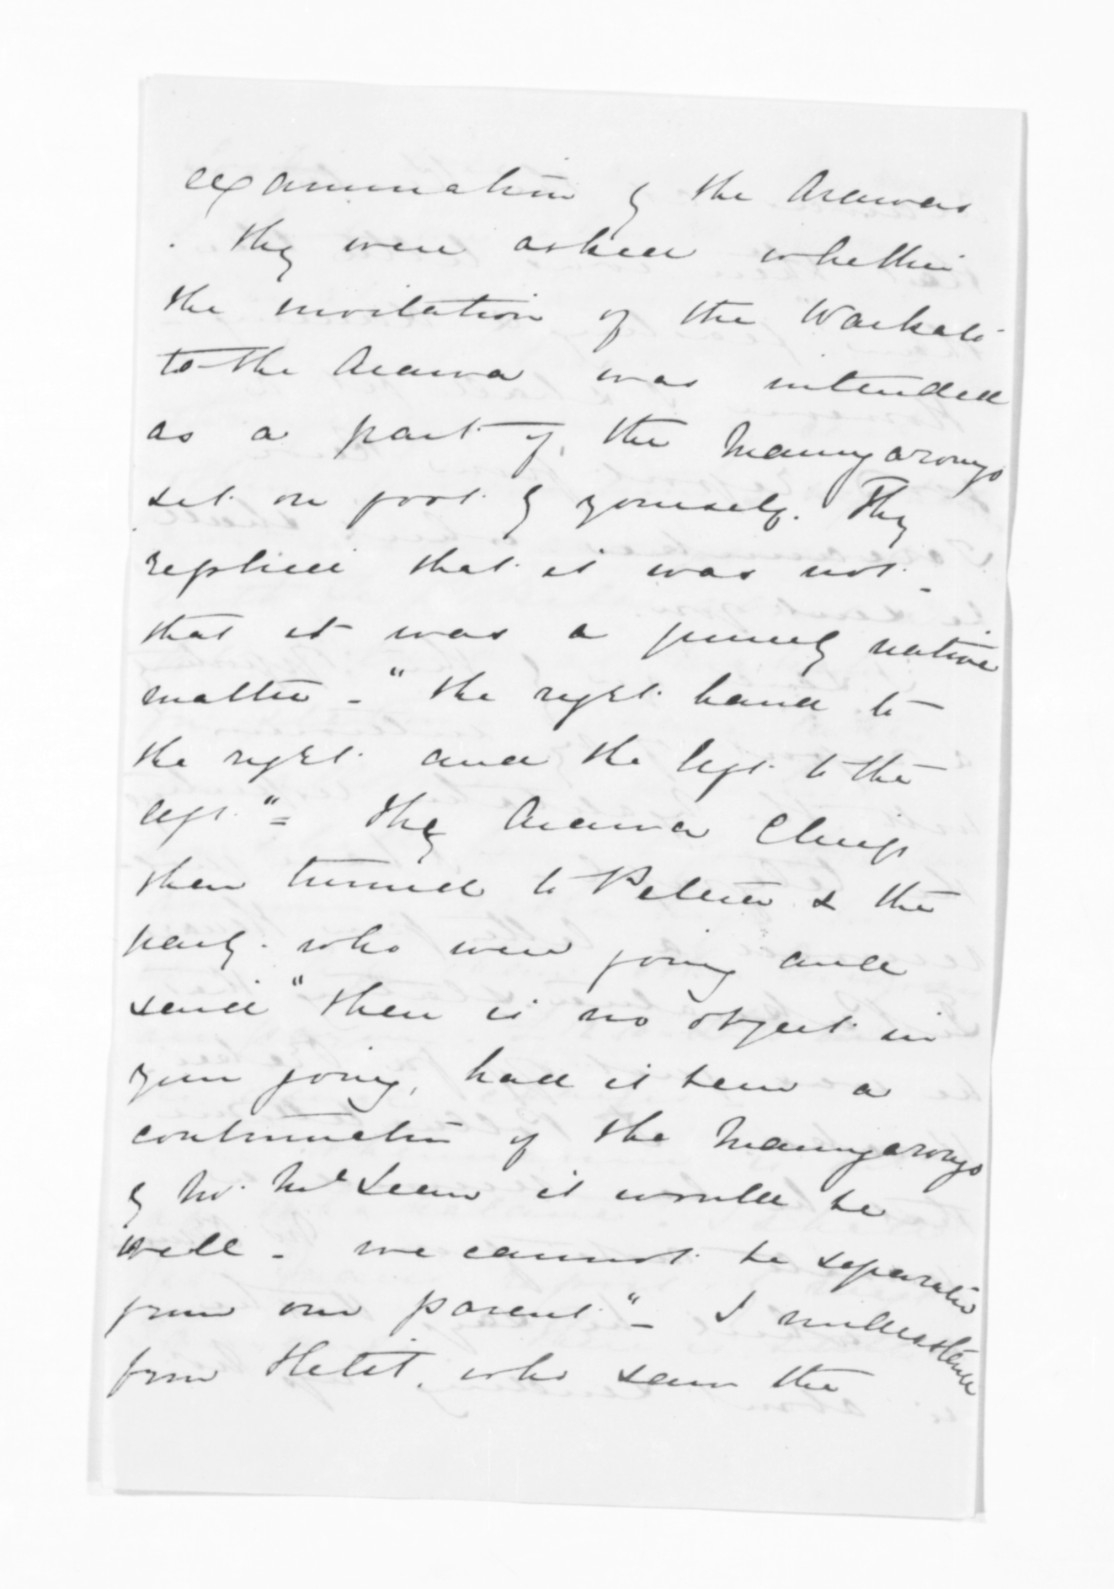 examination by the Arawas
. they were asked whether
the invitation of the Waikato
to the Arawa was intended
as a part of, the Maungarongo
set on foot by yourself. They
replied that it was not -
that it was a purely native
matter - "the right hand to
the right and the left to the
left" = The Arawa Chiefs
then turned to & the
party who were going and
said "there is no object in
your going, had it been a
continuation of the Maungarongo
by Mr. McLean it would be
well - we cannot be separated
from our parent" - I understand
from Hetit. who saw the